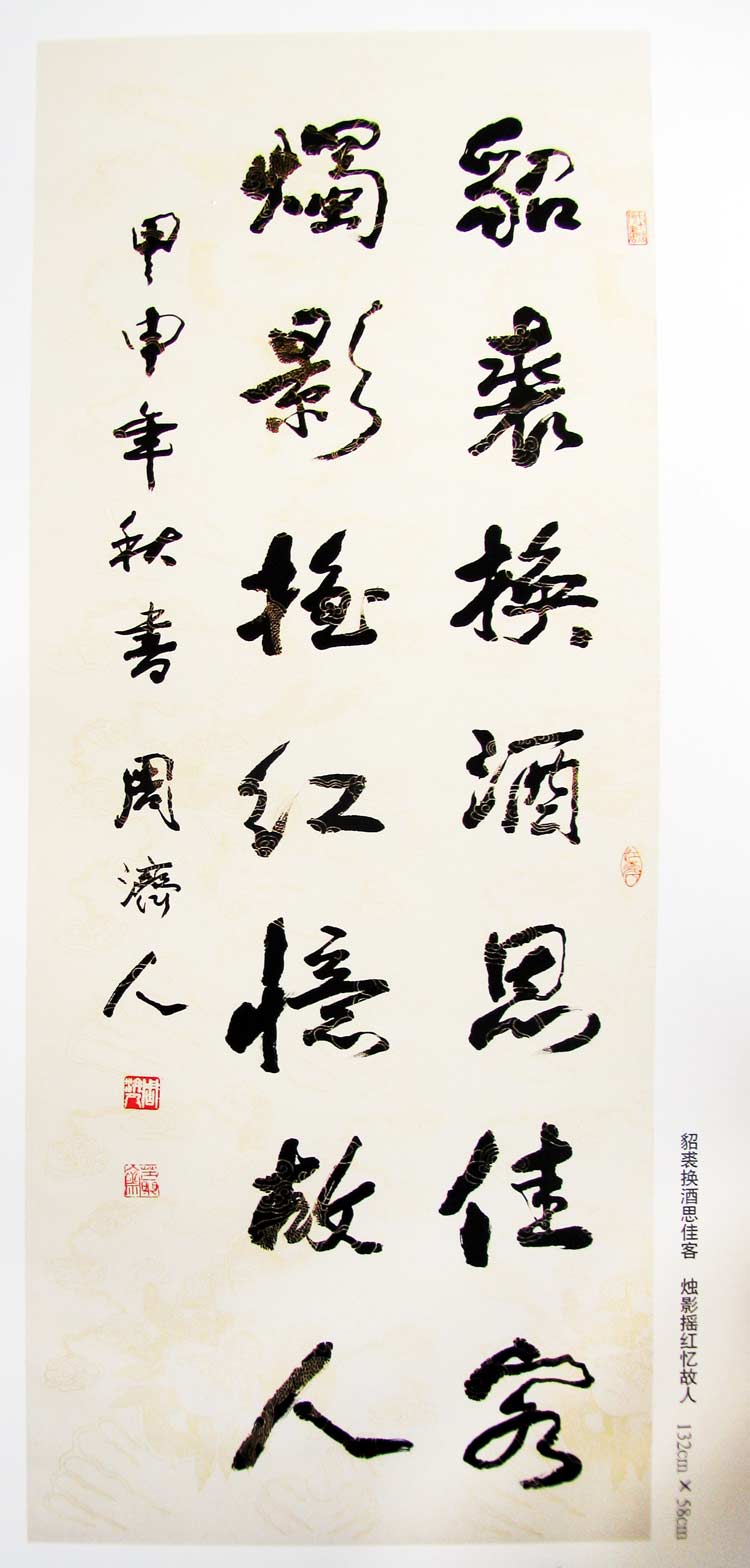 貂裘換酒思佳客
燭影摇红憶故人
甲申年秋書 周濟人
貂裘换酒思佳客 烛影摇红忆故人 132cm × 58cm